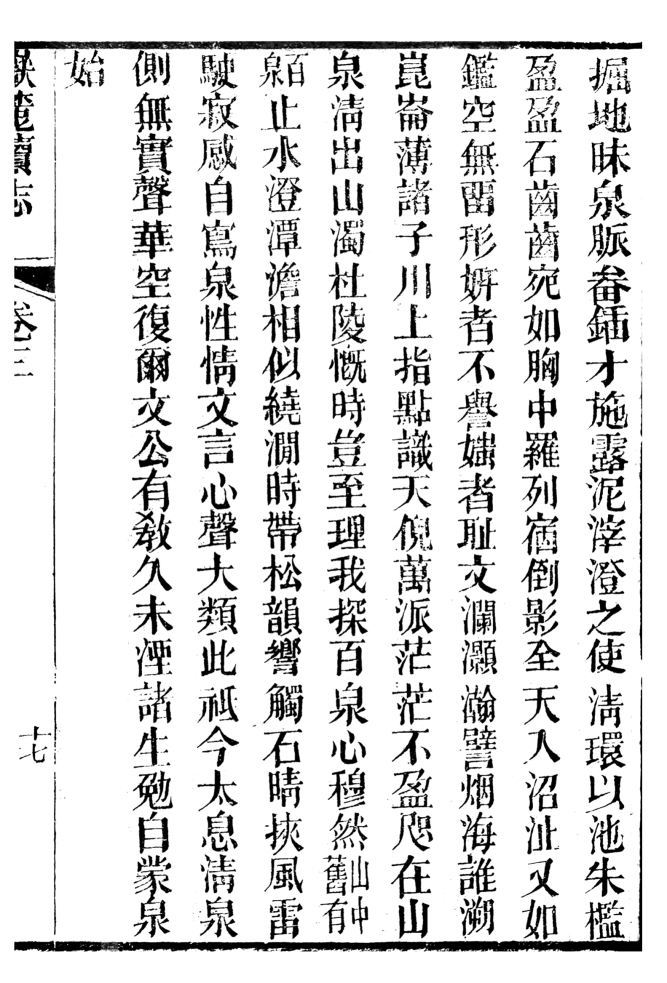 掘地昧泉脈畚鍤才施露泥滓澄之使淸環以池朱檻
盈盈石齒齒宛如胸中羅列宿倒影全天入沼沚又如
鑑空無畱形姸者不譽媸者耻文瀾灝瀚譬烟海誰溯
崑崙薄諸子川上指點識天倪萬派茫茫不盈咫在山
泉淸出山濁杜陵慨時豈至理我探百泉心穆然山中舊有
百泉止水澄潭澹相似繞澗時帶松韻響觸石晴挾風雷
駛寂感自寫泉性情文言心聲大類此祗今太息淸泉
側無實聲華空復爾文公有敎久未湮諸生勉自蒙泉
始
嶽麓續志
卷三
十七